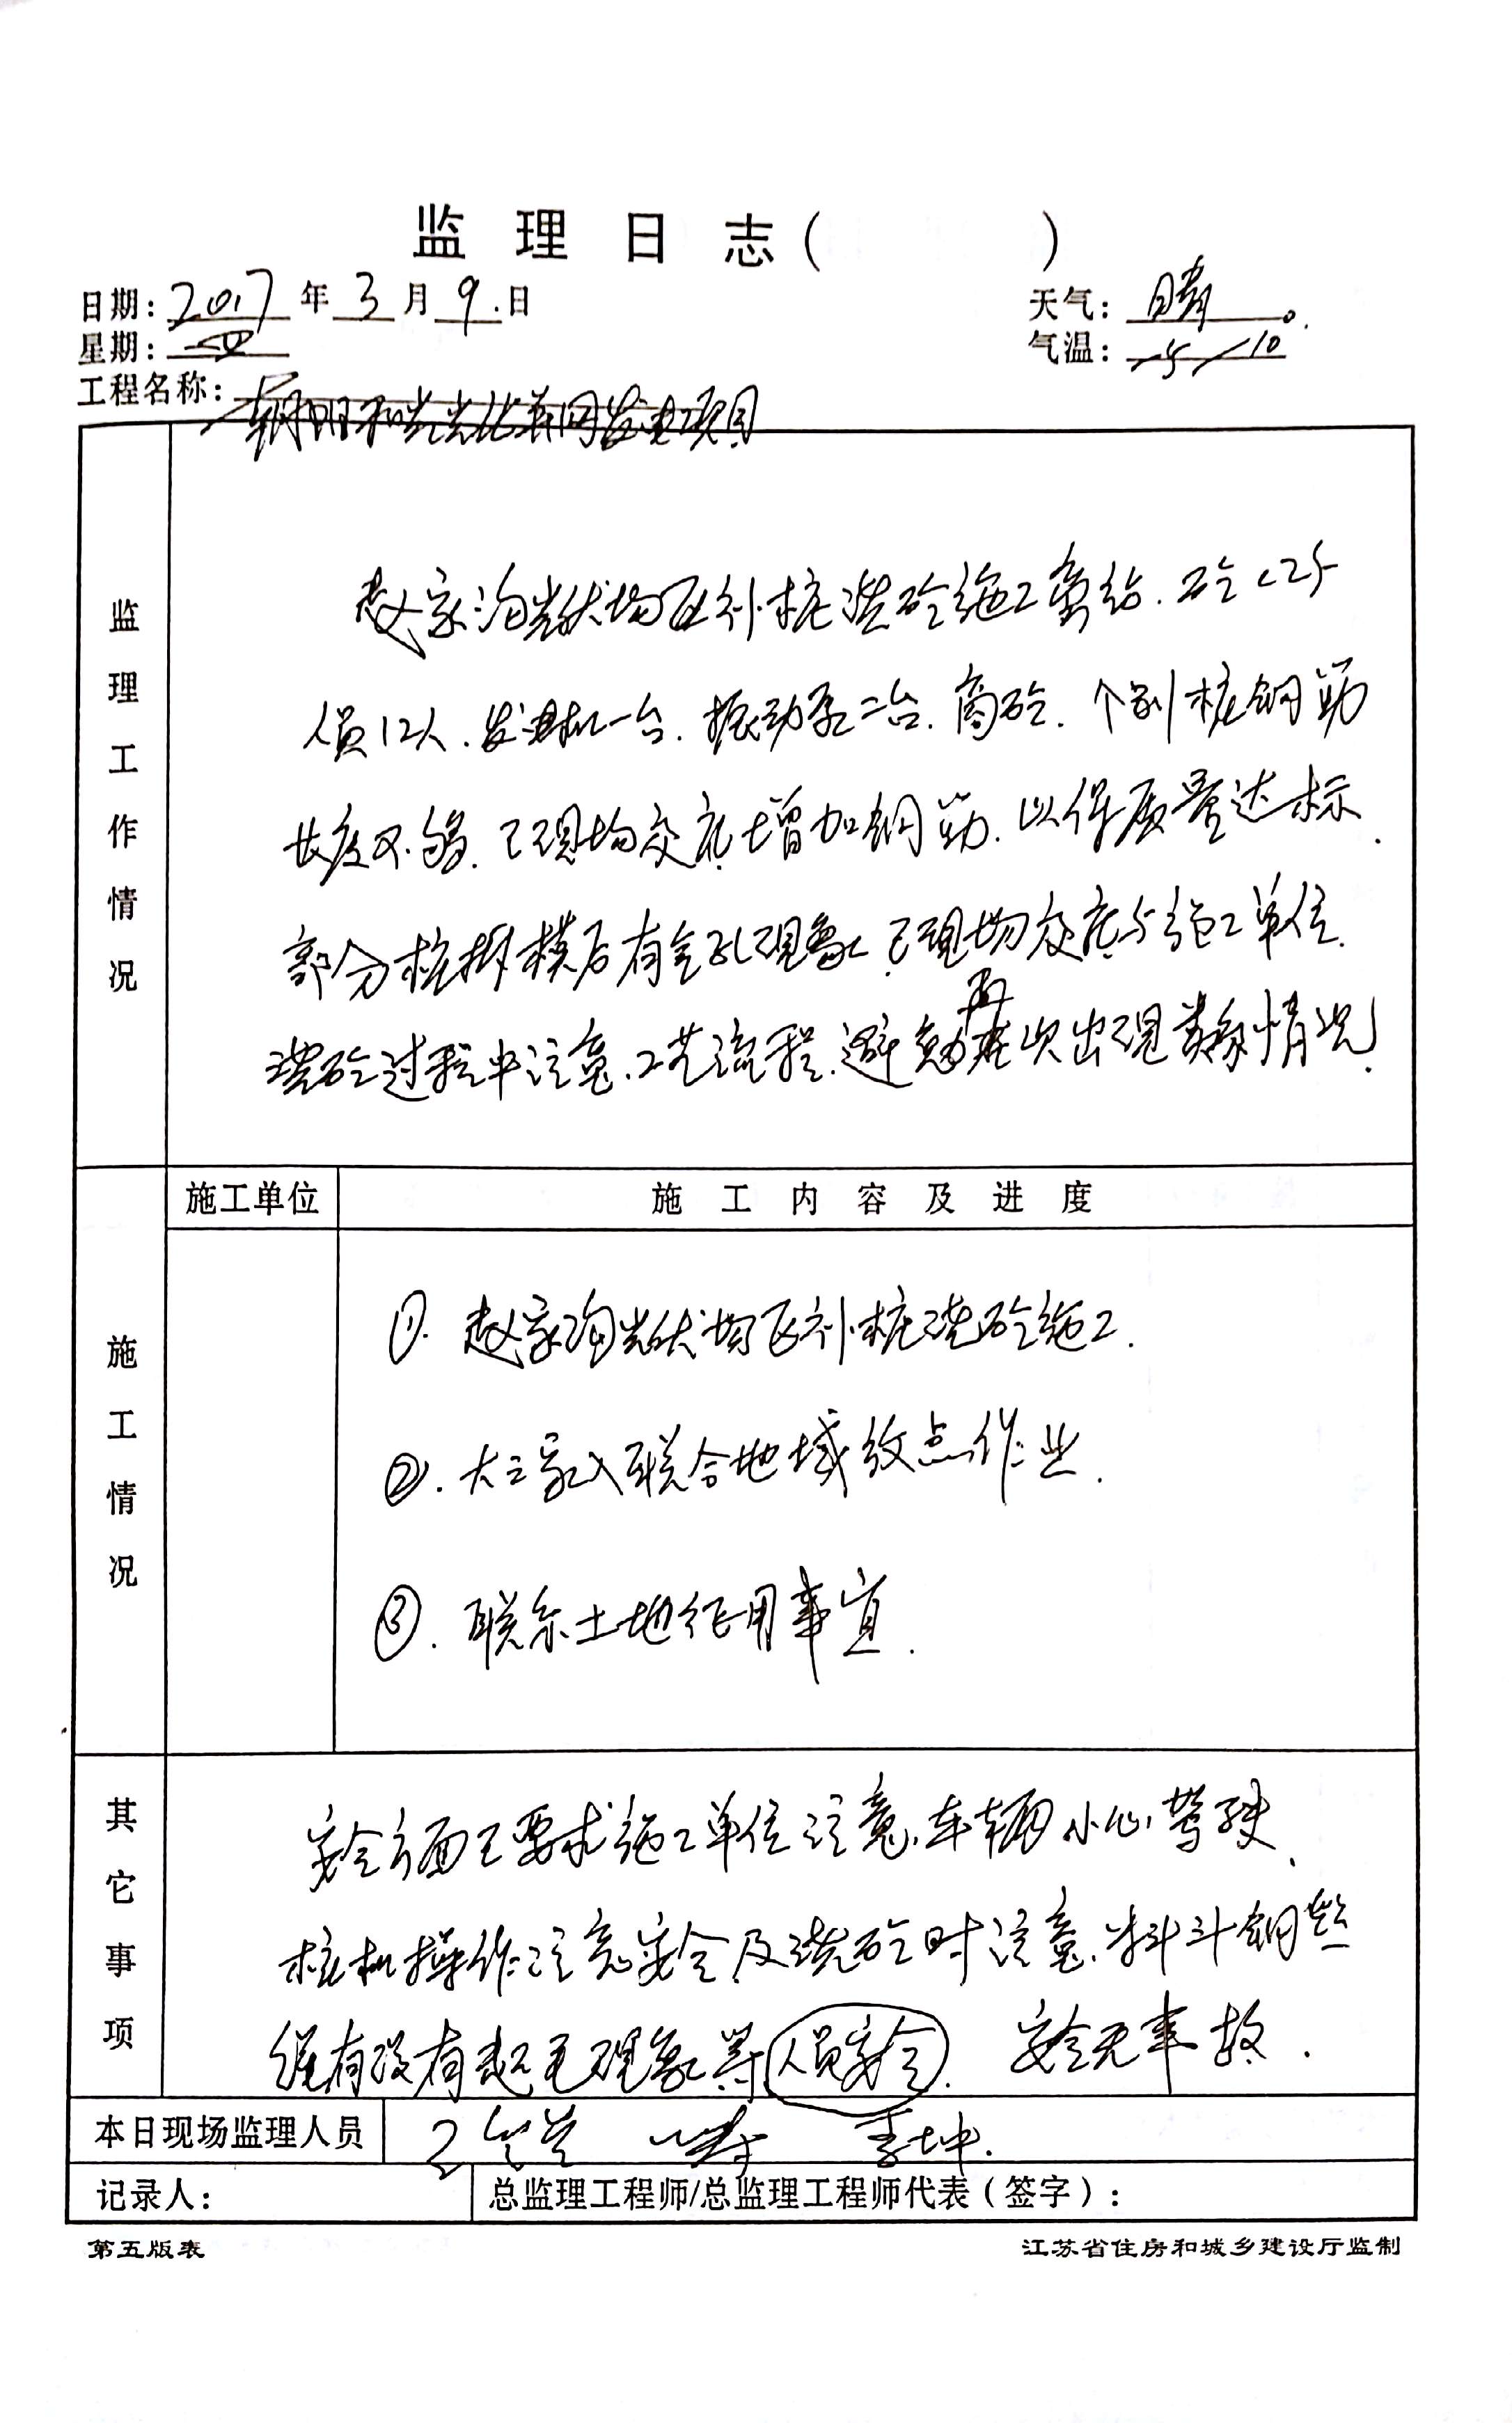 监理日志( )
日期: 2017 年 3 月 9 日 天气: 晴
星期: 四 气温: -5/10
工程名称: 朝阳和光光伏并网发电项目
监理工作情况
赵家沟光伏场区补桩浇砼施工 砼C25
人员12人.发电机一台.振动泵二台.商砼.个别桩钢筋
长度不够.已现场交底增加钢筋.以保质量达标.
部分桩拆模后有气孔现象.已现场交底与施工单位.
浇砼过程中注意.工艺流程.避免再次出现类似情况.
施工情况
施工单位 施工内容及进度
①.赵家沟光伏场区补桩浇砼施工.
②.大三家 联合地域放点作业.
③.联系土地征用事宜.
其它事项
安全方面已要求施工单位注意.车辆小心驾驶.
桩机操作注意安全及浇砼时注意.料斗钢丝
绳有没有起毛现象等人员安全. 安全无事故.
本日现场监理人员 李坤.
记录人: 总监理工程师/总监理工程师代表(签字):
第五版表 江苏省住房和城乡建设厅监制